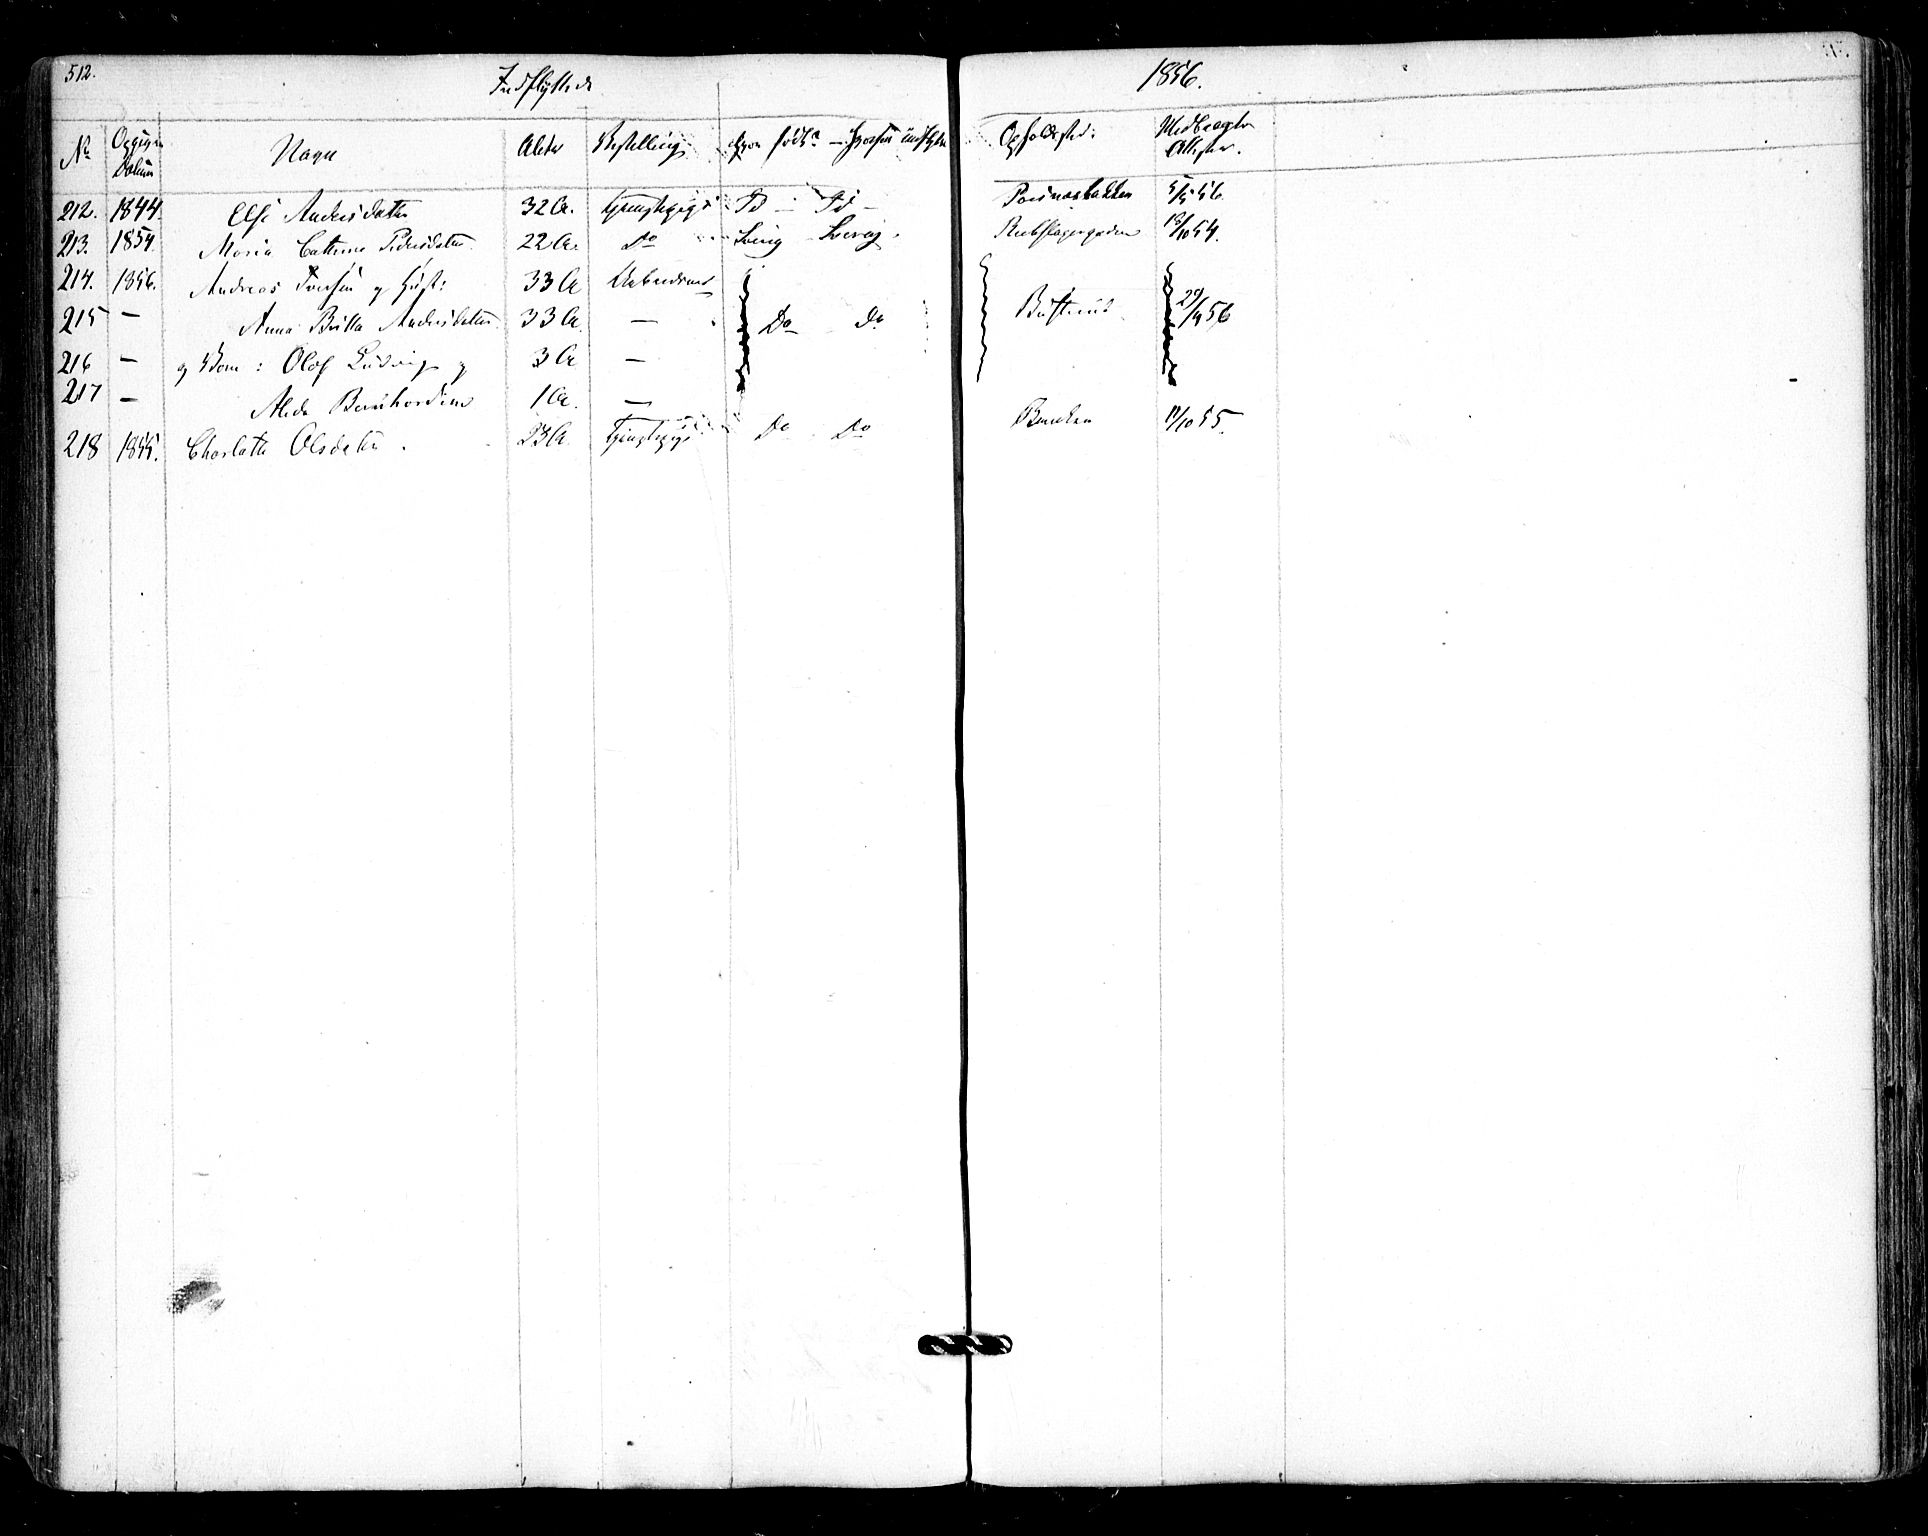 512. Indflyttede 1856.
No Opgiven Datum Navn Alder Bestilling Hvor født? — hvorfra indflyttet Opholdssted: Medbragte Attester.
212. 1844. Else Andersdatter 32 A. Tjenestepige Id — Id — 5/5 56.
213. 1854. Maria Cathrine Pedersdatter 22 A. Do Sverig Sverig. Rebslagergaden 18/10 54.
214. 1856. Andreas Iversen og Hust: 33 A Arbeidsmd
215 — Anna Britta Andersdatter 33 A. — Do Do 29/4 56
216 — og Børn: Olof Ludvig og 3 A —
217 — Alida Bernhardine 1 A. —
218 1855. Charlotte Olsdatter. 23 A. Tjenestepige Do Do 19/10 55.